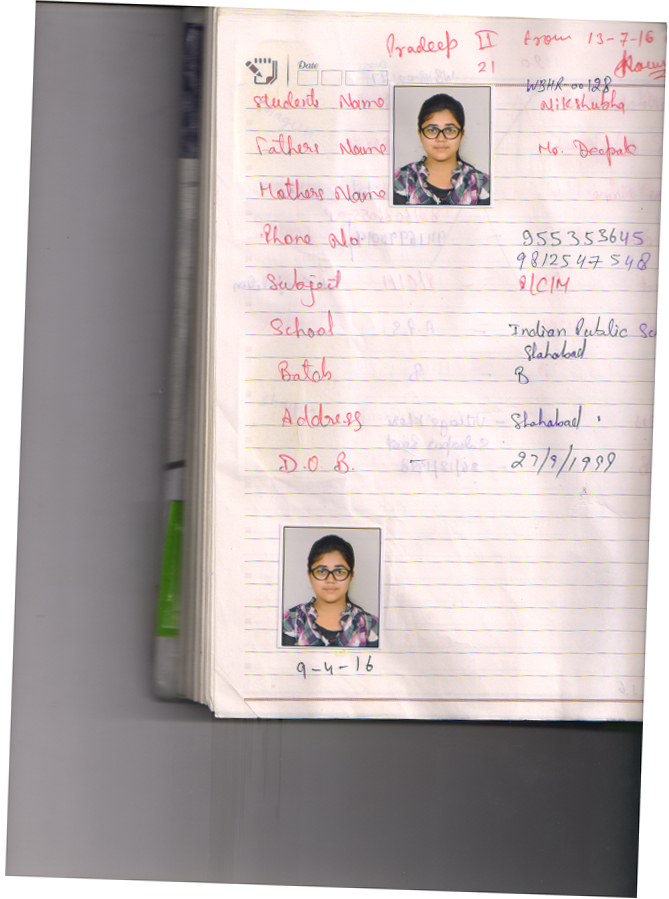 Pradeep II from 13-7-16
21
Date
WBHR-00128
Students Name Nikshubha
Fathers Name Mr. Deepak
Mothers Name
Phone No. 955353645
9812547548
Subject P/C/M
School Indian Public Sc
Shahabad
Batch B
Address Shahabad
D.O.B. - 27/9/1999
9-4-16